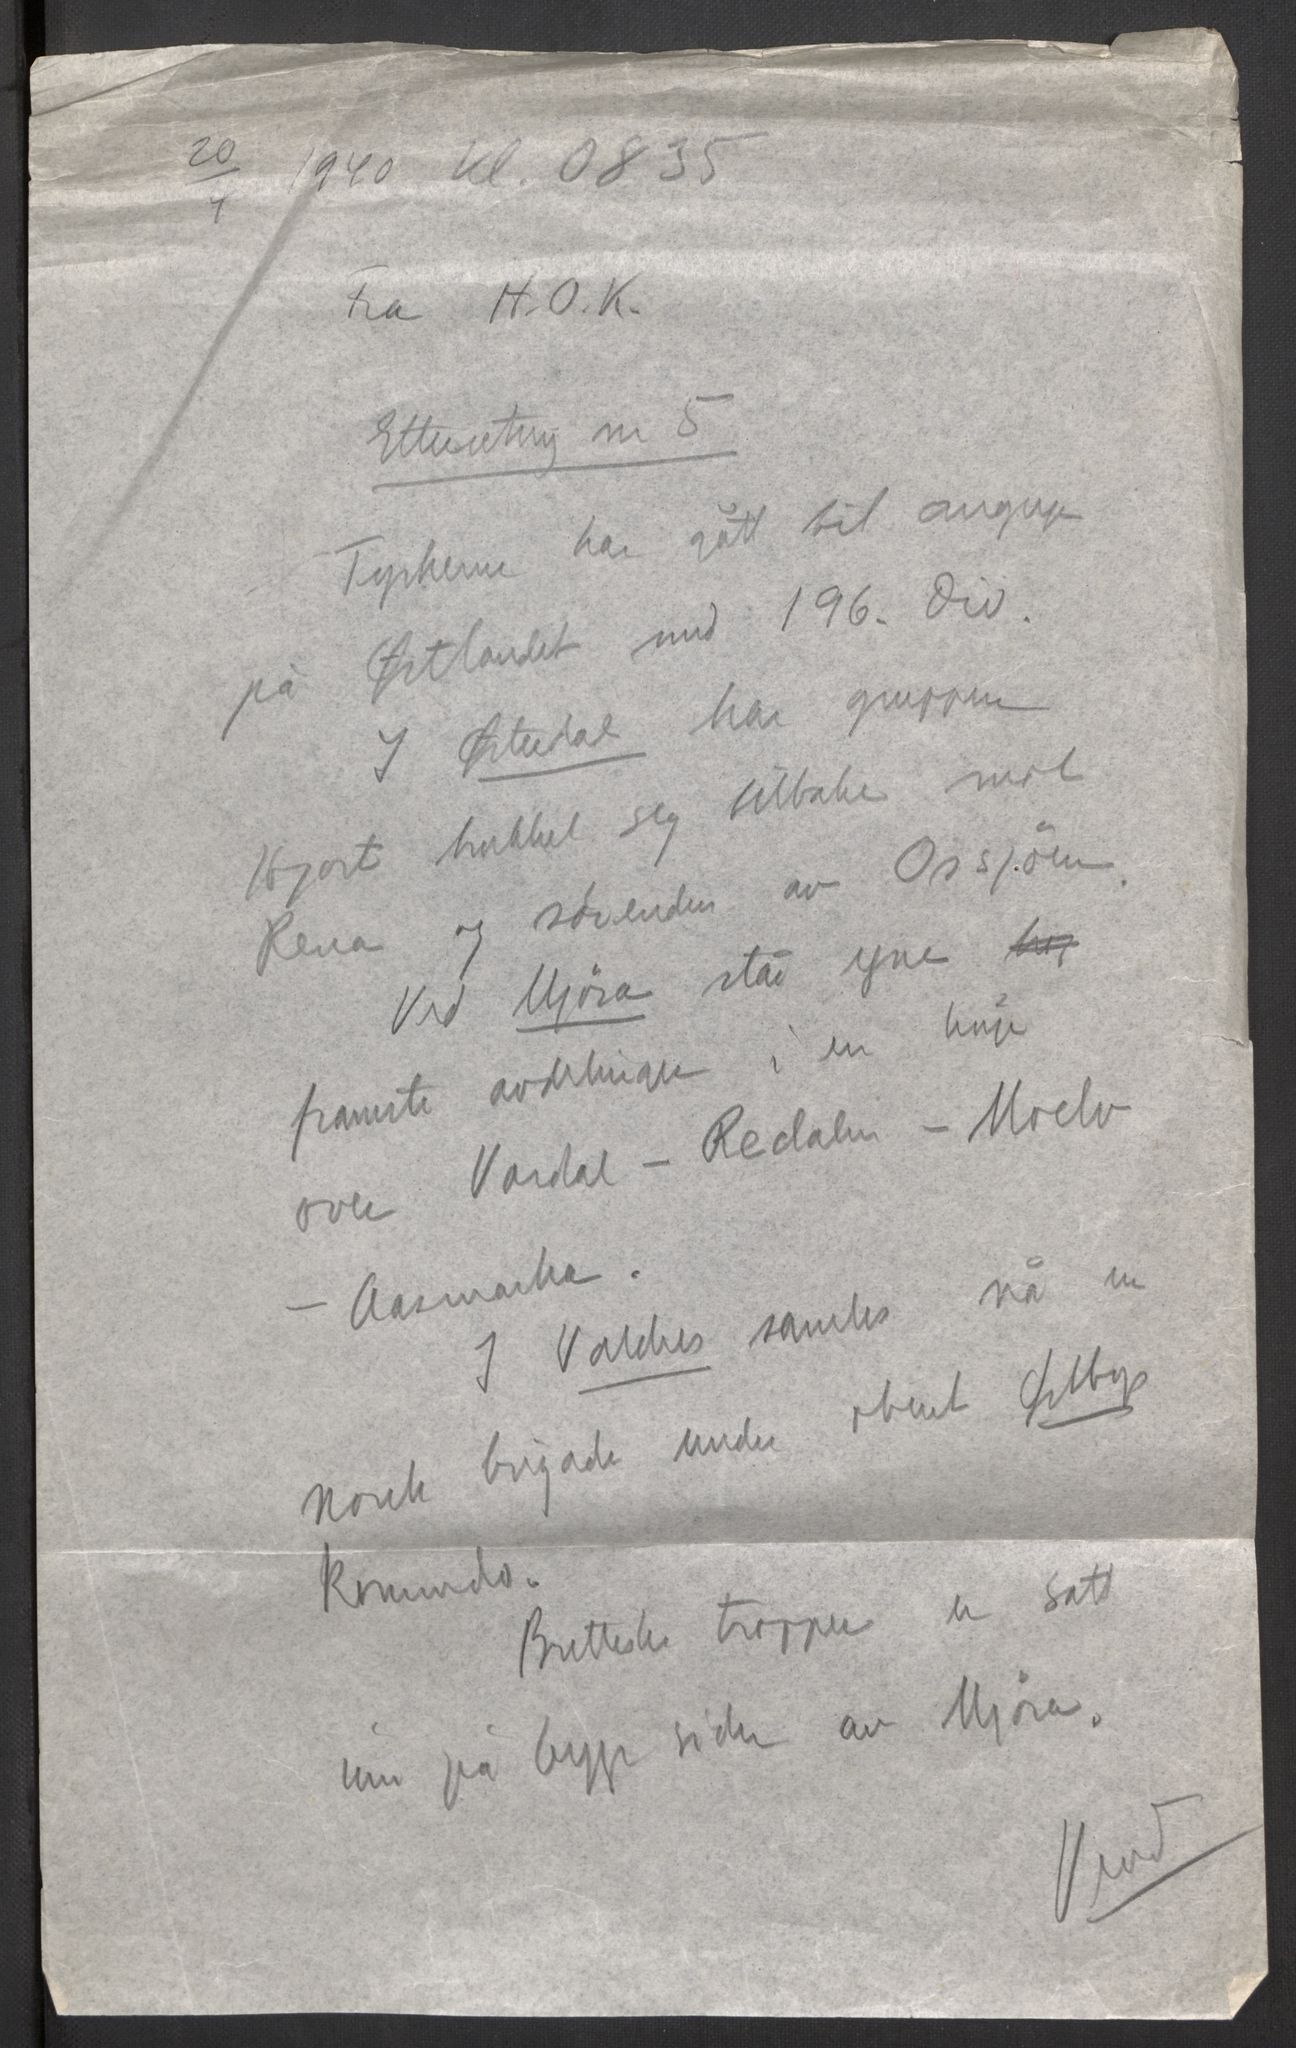 20/4 1940 kl. 0835
Fra H.O.K.
Etterretning nr 5
Tyskerne har gått til angrep
på Østlandet med 196. Div.
I Østerdal har gruppen
Hjort trukket seg tilbake mot
Rena og sørenden av Ossjöen.
Ved Mjösa står egne
fremste avdelinger i en linje
over Vardal - Redalen - Moelv
- Aasmarka.
I Valdres samles nå en
norsk brigade under oberst Østbye
Kommando.
Brittiske tropper er satt
inn på begge sider av Mjösa.